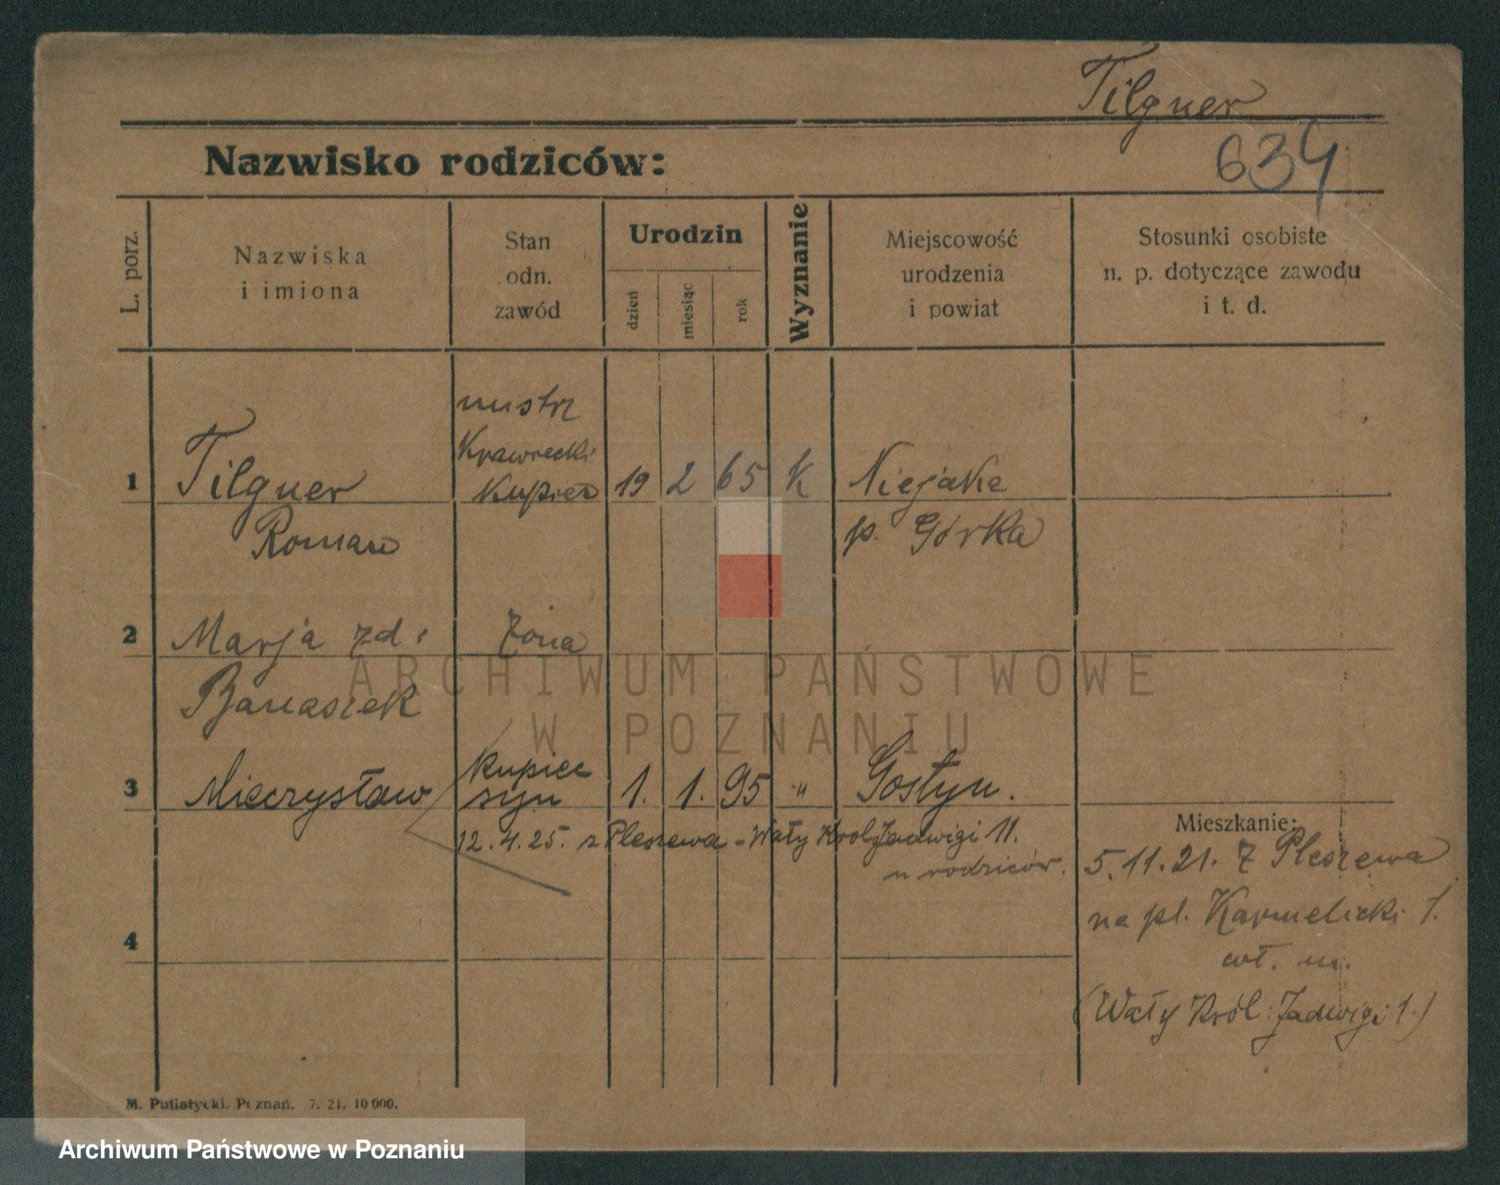 Tilgner
634
Nazwisko rodziców:
L. porz.
Nazwiska
i imiona
Stan
odn.
zawód
Urodzin
dzień
miesiąc
rok
Wyznanie
Miejscowość
urodzenia
i powiat
Stosunki osobiste
n. p. dotyczące zawodu
i t. d.
mistrz
Krawiecki
1 Tilgner Kupiec 19 2 65 K Niejake
Roman p. Górka
2 Marja zd. Żona
Banaszek
Kupiec
3 Mieczysław syn 1. 1. 95 " Gostyn.
12.4.25. z Pleszewa - Wały Król Jadwigi 11.
u rodziców.
Mieszkanie:
5.11.21. Z Pleszewa
na pl. Karmelicki 1.
wł. m.
(Wały Król: Jadwigi 1.)
4
M. Putiatycki, Poznań. 7. 21. 10 000.
ARCHIWUM PAŃSTWOWE
W POZNANIU
Archiwum Państwowe w Poznaniu